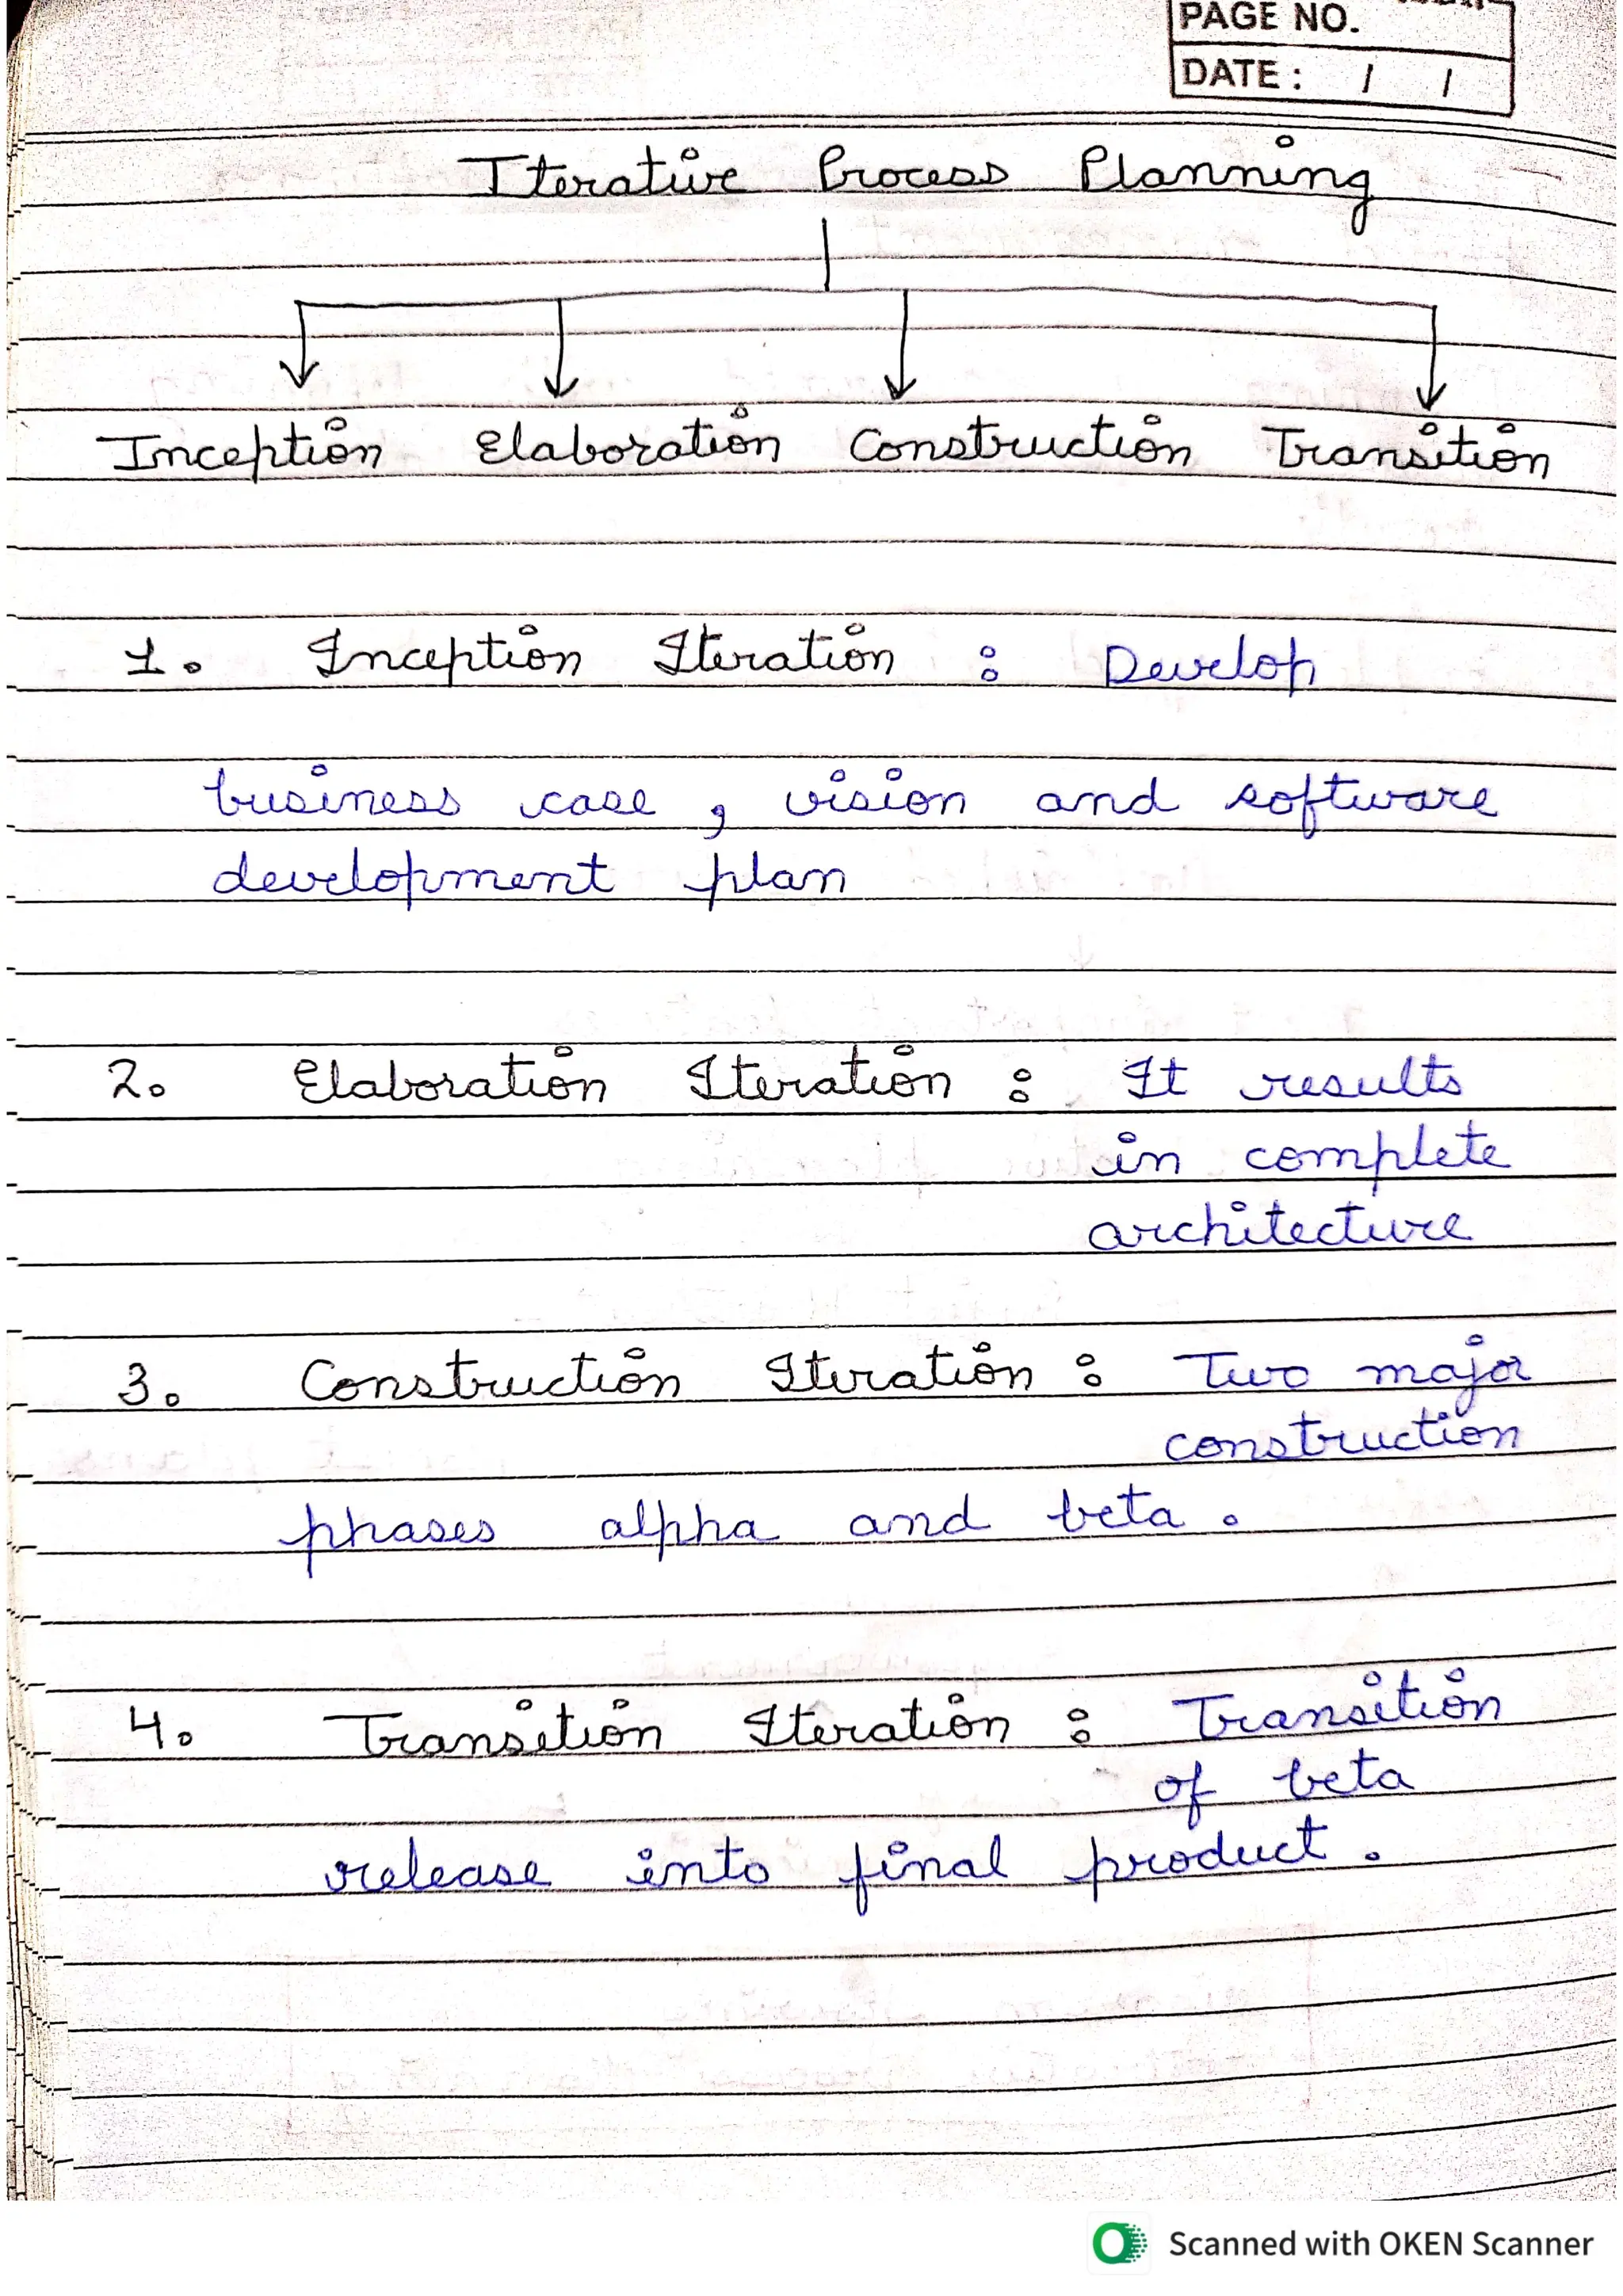 PAGE NO.
DATE : / /
Iterative Process Planning
Inception Elaboration Construction Transition
1. Inception Iteration : Develop
business case, vision and software
development plan
2. Elaboration Iteration : It results
in complete
architecture
3. Construction Iteration : Two major
construction
phases alpha and beta.
4. Transition Iteration : Transition
of beta
release into final product.
Scanned with OKEN Scanner